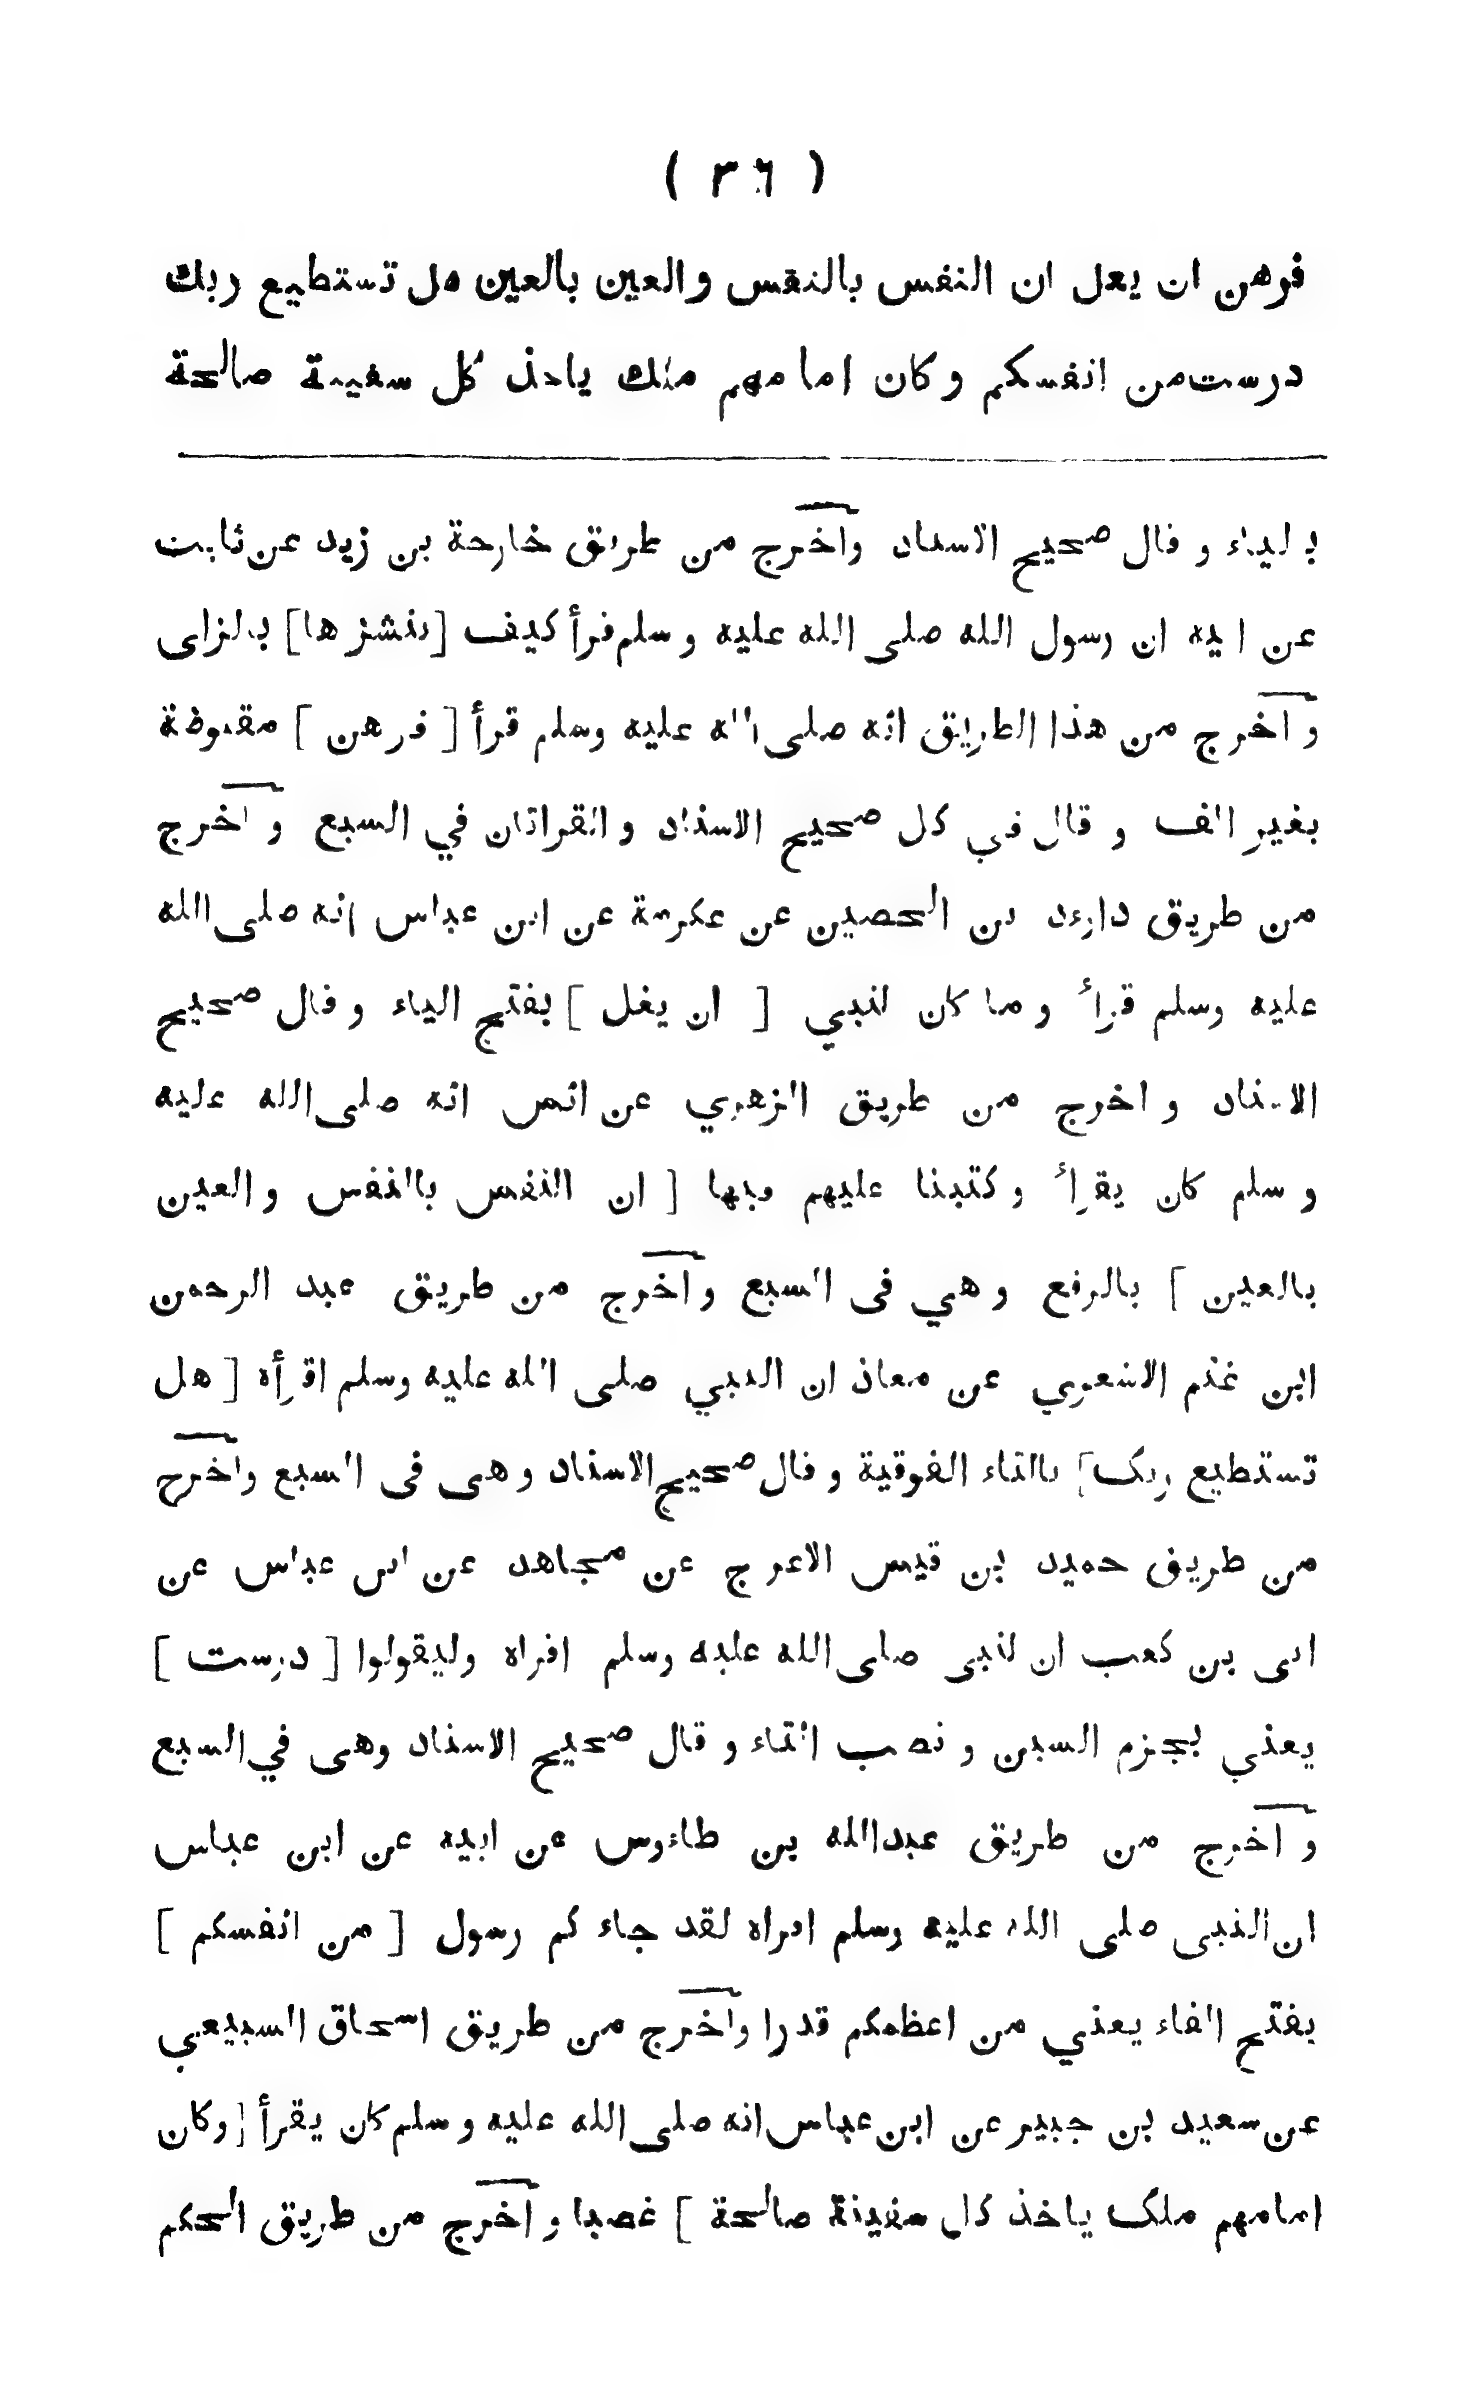 ( ٣٦ )
فرهن ان يعل ان النفس بالنفس والعين بالعين هل تستطيع ربك
درست من انفسكم وكان امامهم ملك ياخذ كل سفينة صالحة
بالياء و قال صحيح الاسناد واخرج من طريق خارجة بن زيد عن ثابت
عن ابيه ان رسول الله صلى الله عليه وسلم قرأ كيف [ننشزها] بالزاى
واخرج من هذا الطريق انه صلى الله عليه وسلم قرأ [ فرهن ] مقبوضة
بغير الف و قال في كل صحيح الاسناد والقراتان في السبع واخرج
من طريق داؤد بن الحصين عن عكرمة عن ابن عباس انه صلى الله
عليه وسلم قرأ وما كان لنبي [ ان يغل ] بفتح الياء و قال صحيح
الاسناد واخرج من طريق الزهري عن انس انه صلى الله عليه
وسلم كان يقرأ وكتبنا عليهم فيها [ ان النفس بالنفس والعين
بالعين ] بالرفع وهي فى السبع واخرج من طريق عبد الرحمن
ابن غنم الاشعري عن معاذ ان النبي صلى الله عليه وسلم اقرأه [ هل
تستطيع ربك] بالتاء الفوقية و قال صحيح الاسناد وهى فى السبع واخرج
من طريق حميد بن قيس الاعرج عن مجاهد عن ابن عباس عن
ابى بن كعب ان لنبى صلى الله عليه وسلم اقراه وليقولوا [ درست ]
يعني بجزم السين و نصب التاء و قال صحيح الاسناد وهى في السبع
واخرج من طريق عبدالله بن طاءوس عن ابيه عن ابن عباس
ان النبى صلى الله عليه وسلم اقراه لقد جاءكم رسول [ من انفسكم ]
بفتح الفاء يعني من اعظمكم قدرا واخرج من طريق اسحاق السبيعي
عن سعيد بن جبير عن ابن عباس انه صلى الله عليه وسلم كان يقرأ [ وكان
امامهم ملك ياخذ كل سفينة صالحة ] غصبا واخرج من طريق الحكم